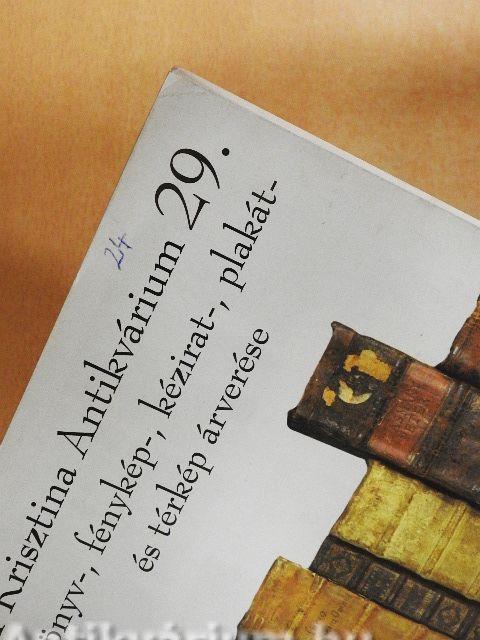 Krisztina Antikvárium 29.
könyv-, fénykép-, kézirat-, plakát-
és térkép árverése
24